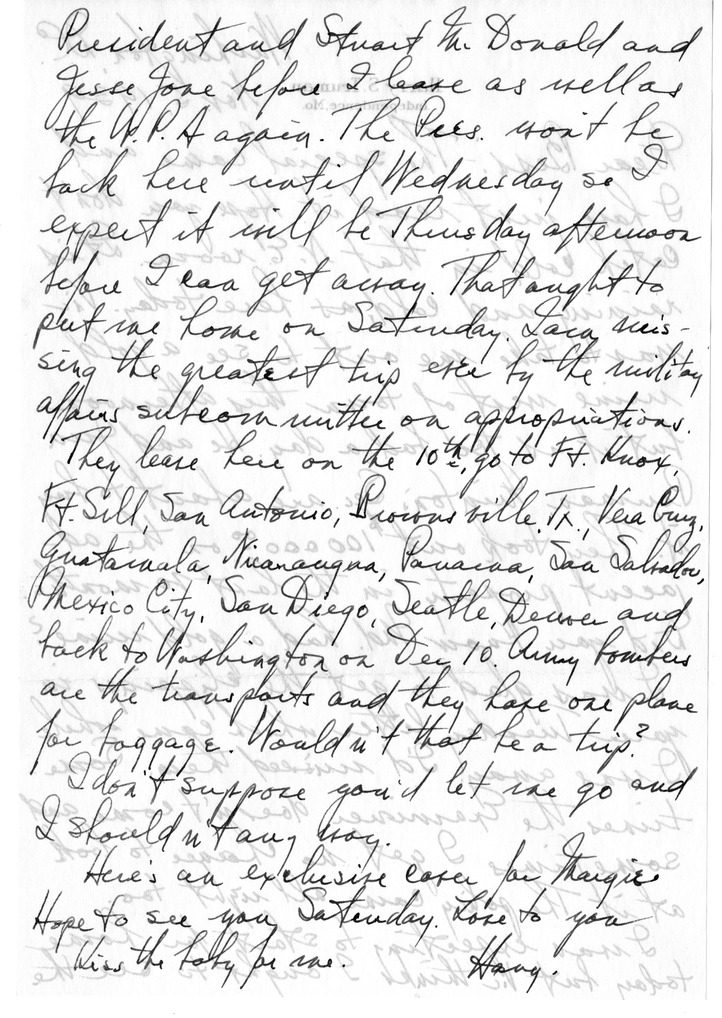 President and Stuart McDonald and
Jesse Jone before I leave as well as
the W.P.A again. The Pres. won't be
back here until Wednesday so I
expect it will be Thursday afternoon
before I can get away. That ought to
put me home on Saturday. I am mis-
sing the greatest trip ever by the military
affairs subcommittee on appropriations.
They leave here on the 10th, go to Ft. Knox,
Ft. Sill, San Antonio, Brownsville, Tx., Vera Cruz,
Guatamala, Nicaraugua, Panama, San Salvador,
Mexico City, San Diego, Seatle, Denver and
back to Washington on Dec 10. Army bombers
are the transports and they have one plane
for baggage. Wouldn't that be a trip?
I don't suppose you'd let me go and
I shouldn't any way.
Here's an exclusive cover for Margie.
Hope to see you Saturday. Love to you
Kiss the baby for me. Harry.